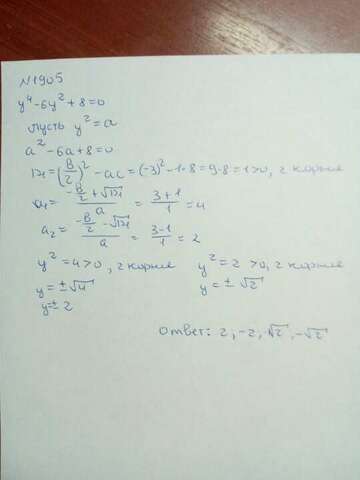 N1905
y⁴-6y²+8=0
Пусть y²=a
a²-6a+8=0
D₁=(B/2)²-ac=(-3)²-1·8=9-8=1>0, 2 корня
a₁=(-B/2+√D₁)/a=(3+1)/1=4
a₂=(-B/2-√D₁)/a=(3-1)/1=2
y²=4>0, 2 корня y²=2>0, 2 корня
y=±√4 y=±√2
y=±2
Ответ: 2, -2, √2, -√2